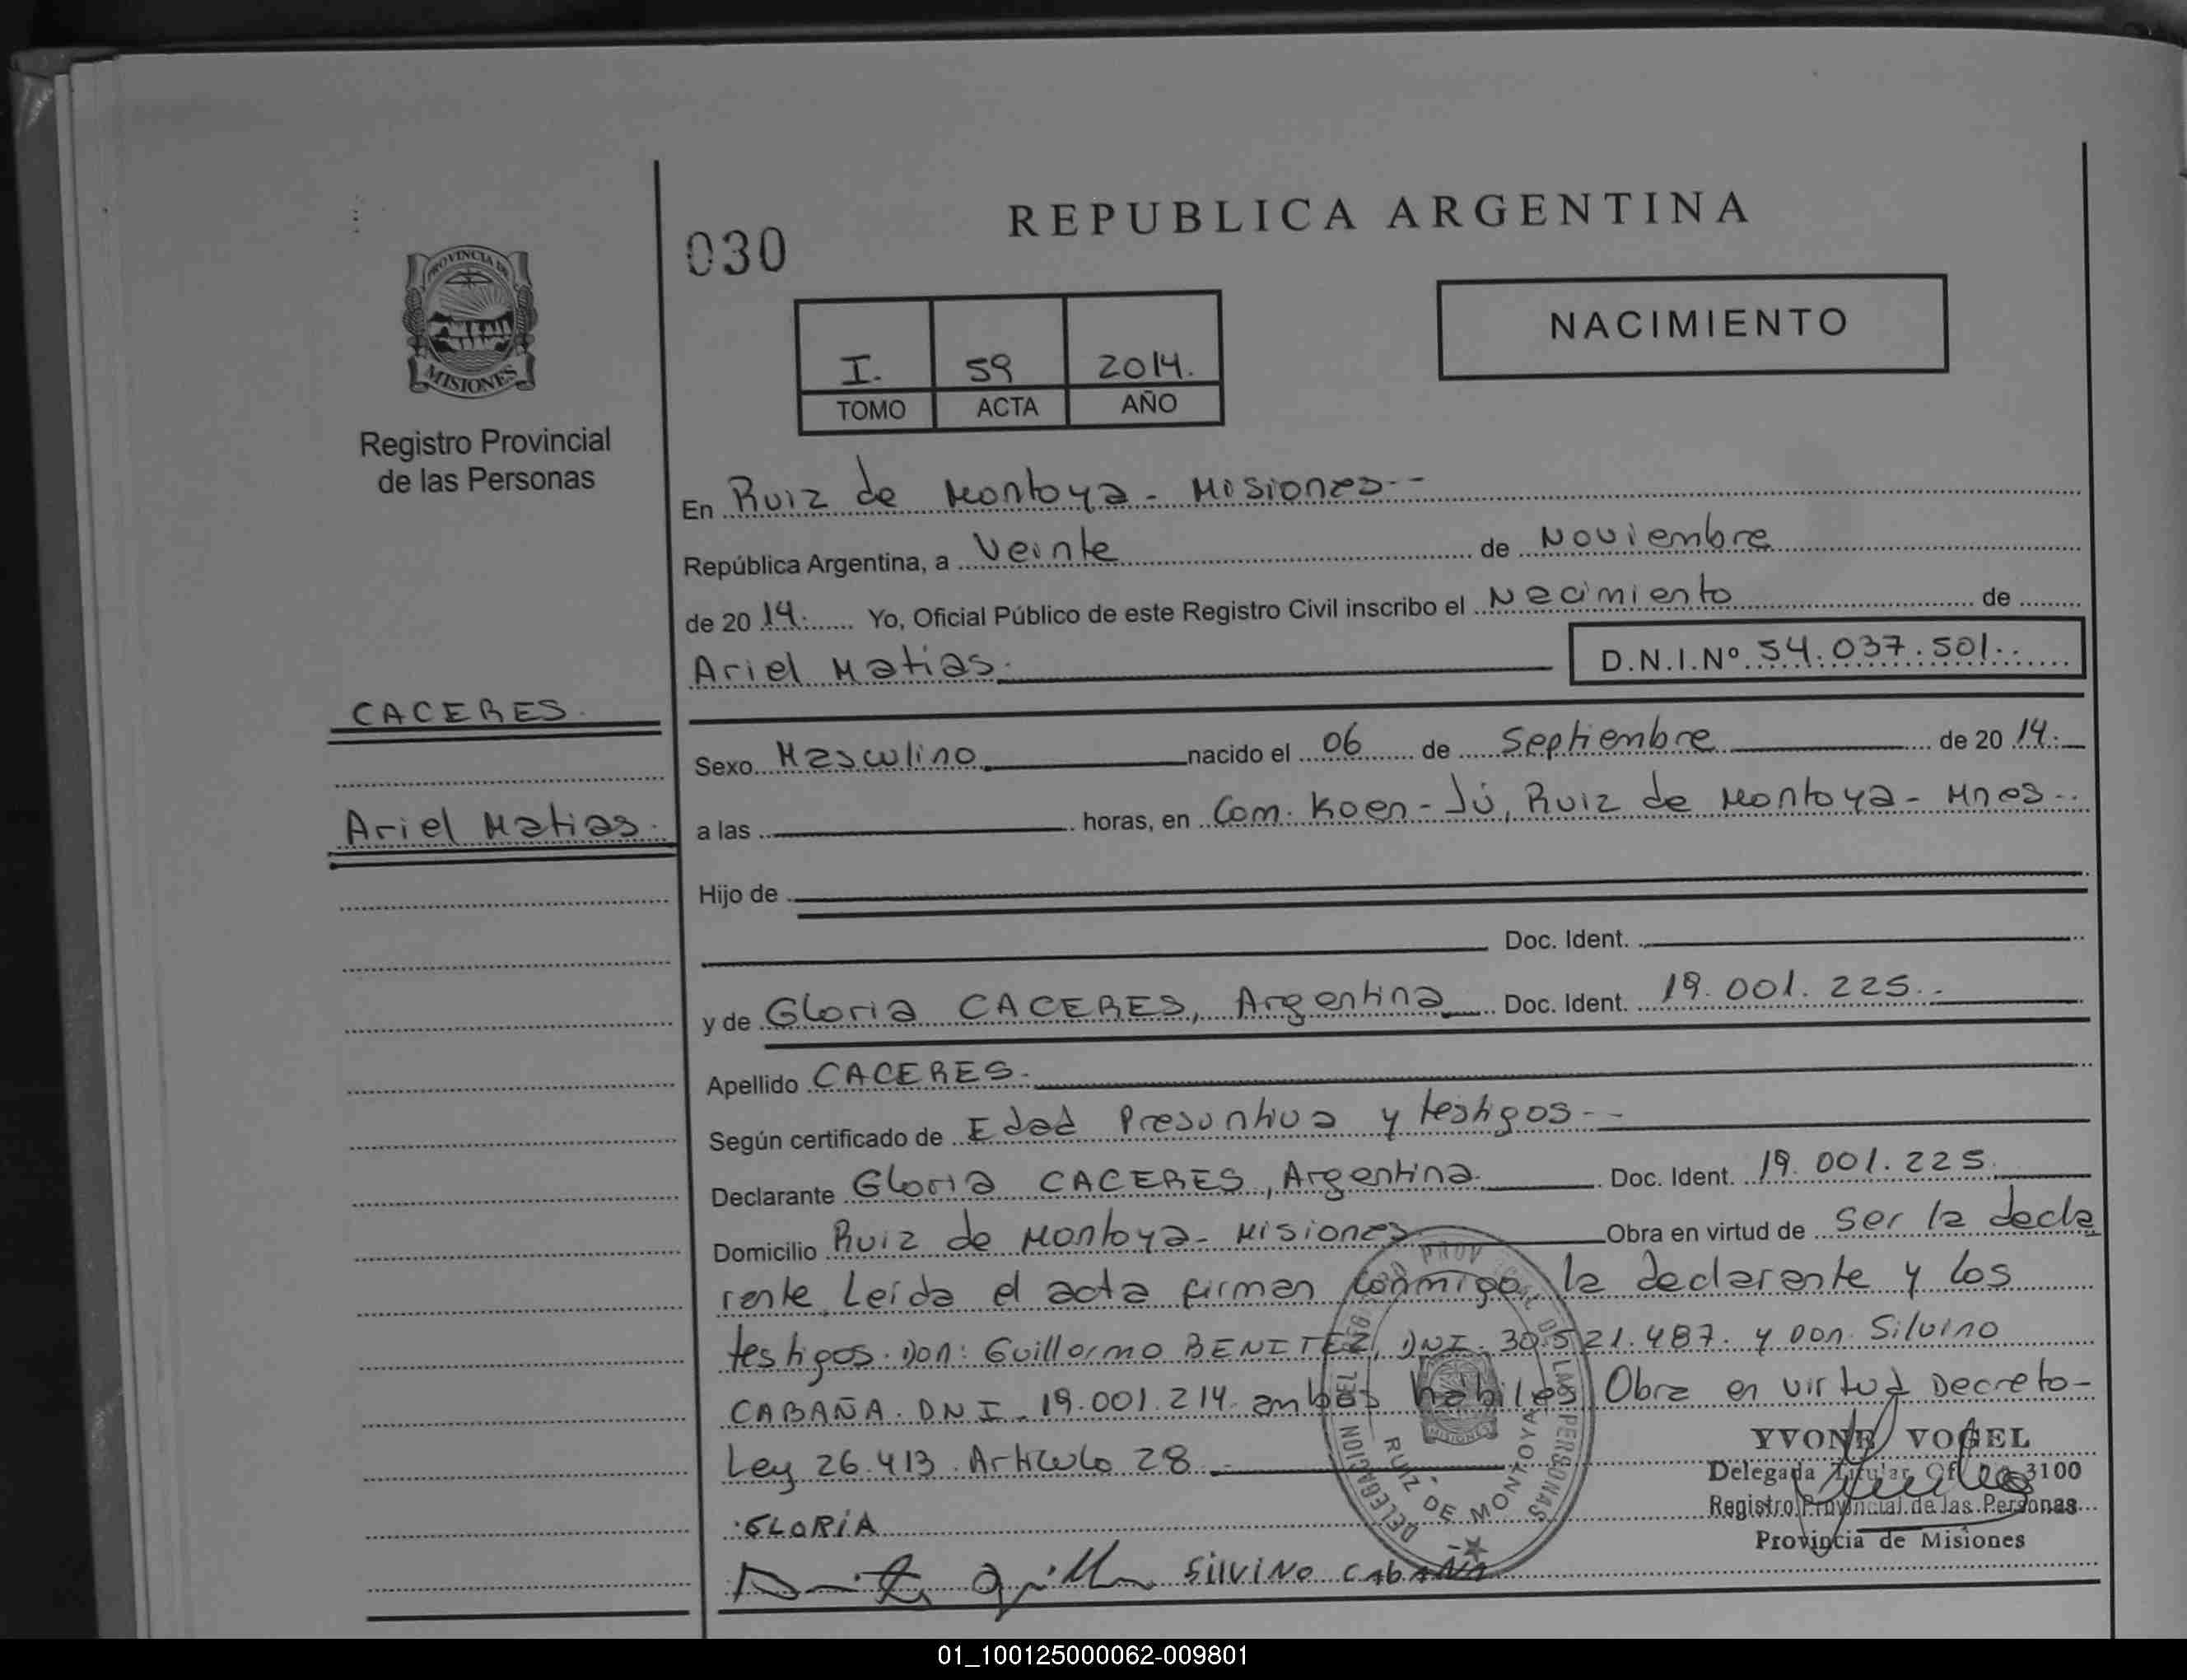 REPUBLICA ARGENTINA
030
PROVINCIA DE
MISIONES
Registro Provincial
de las Personas
NACIMIENTO
I. 59 2014.
TOMO ACTA AÑO
En Ruiz de Montoya - Misiones--
República Argentina, a Veinte de Noviembre
de 20 14. Yo, Oficial Público de este Registro Civil inscribo el Nacimiento de
Ariel Matias. D.N.I.Nº 54.037.501..
CACERES.
Sexo Masculino nacido el 06 de Septiembre de 20 14.
Ariel Matias.
a las horas, en Com. Koen-Jú, Ruiz de Montoya - Mnes-.
Hijo de
Doc. Ident.
y de Gloria CACERES, Argentina Doc. Ident. 19.001.225.-
Apellido CACERES.
Según certificado de Edad Presuntiva y testigos--
Declarante Gloria CACERES, Argentina. Doc. Ident. 19.001.225.
Domicilio Ruiz de Montoya - Misiones Obra en virtud de ser la decla
rante. Leída el acta firman conmigo, la declarante y los
testigos. Don: Guillermo BENITEZ, DNI. 30.521.487. y Don Silvino
CABAÑA. DNI. 19.001.214. ambos habiles Obra en virtud Decreto-
Ley 26.413. Articulo 28.
YVONE VOGEL
Delegada Titular Of. 3100
Registro Provincial de las Personas
Provincia de Misiones
DELEGACION DEL REG. PROVINCIAL DE LAS PERSONAS
RUIZ DE MONTOYA
MISIONES
GLORIA
SilviNo CabAÑA
01_100125000062-009801